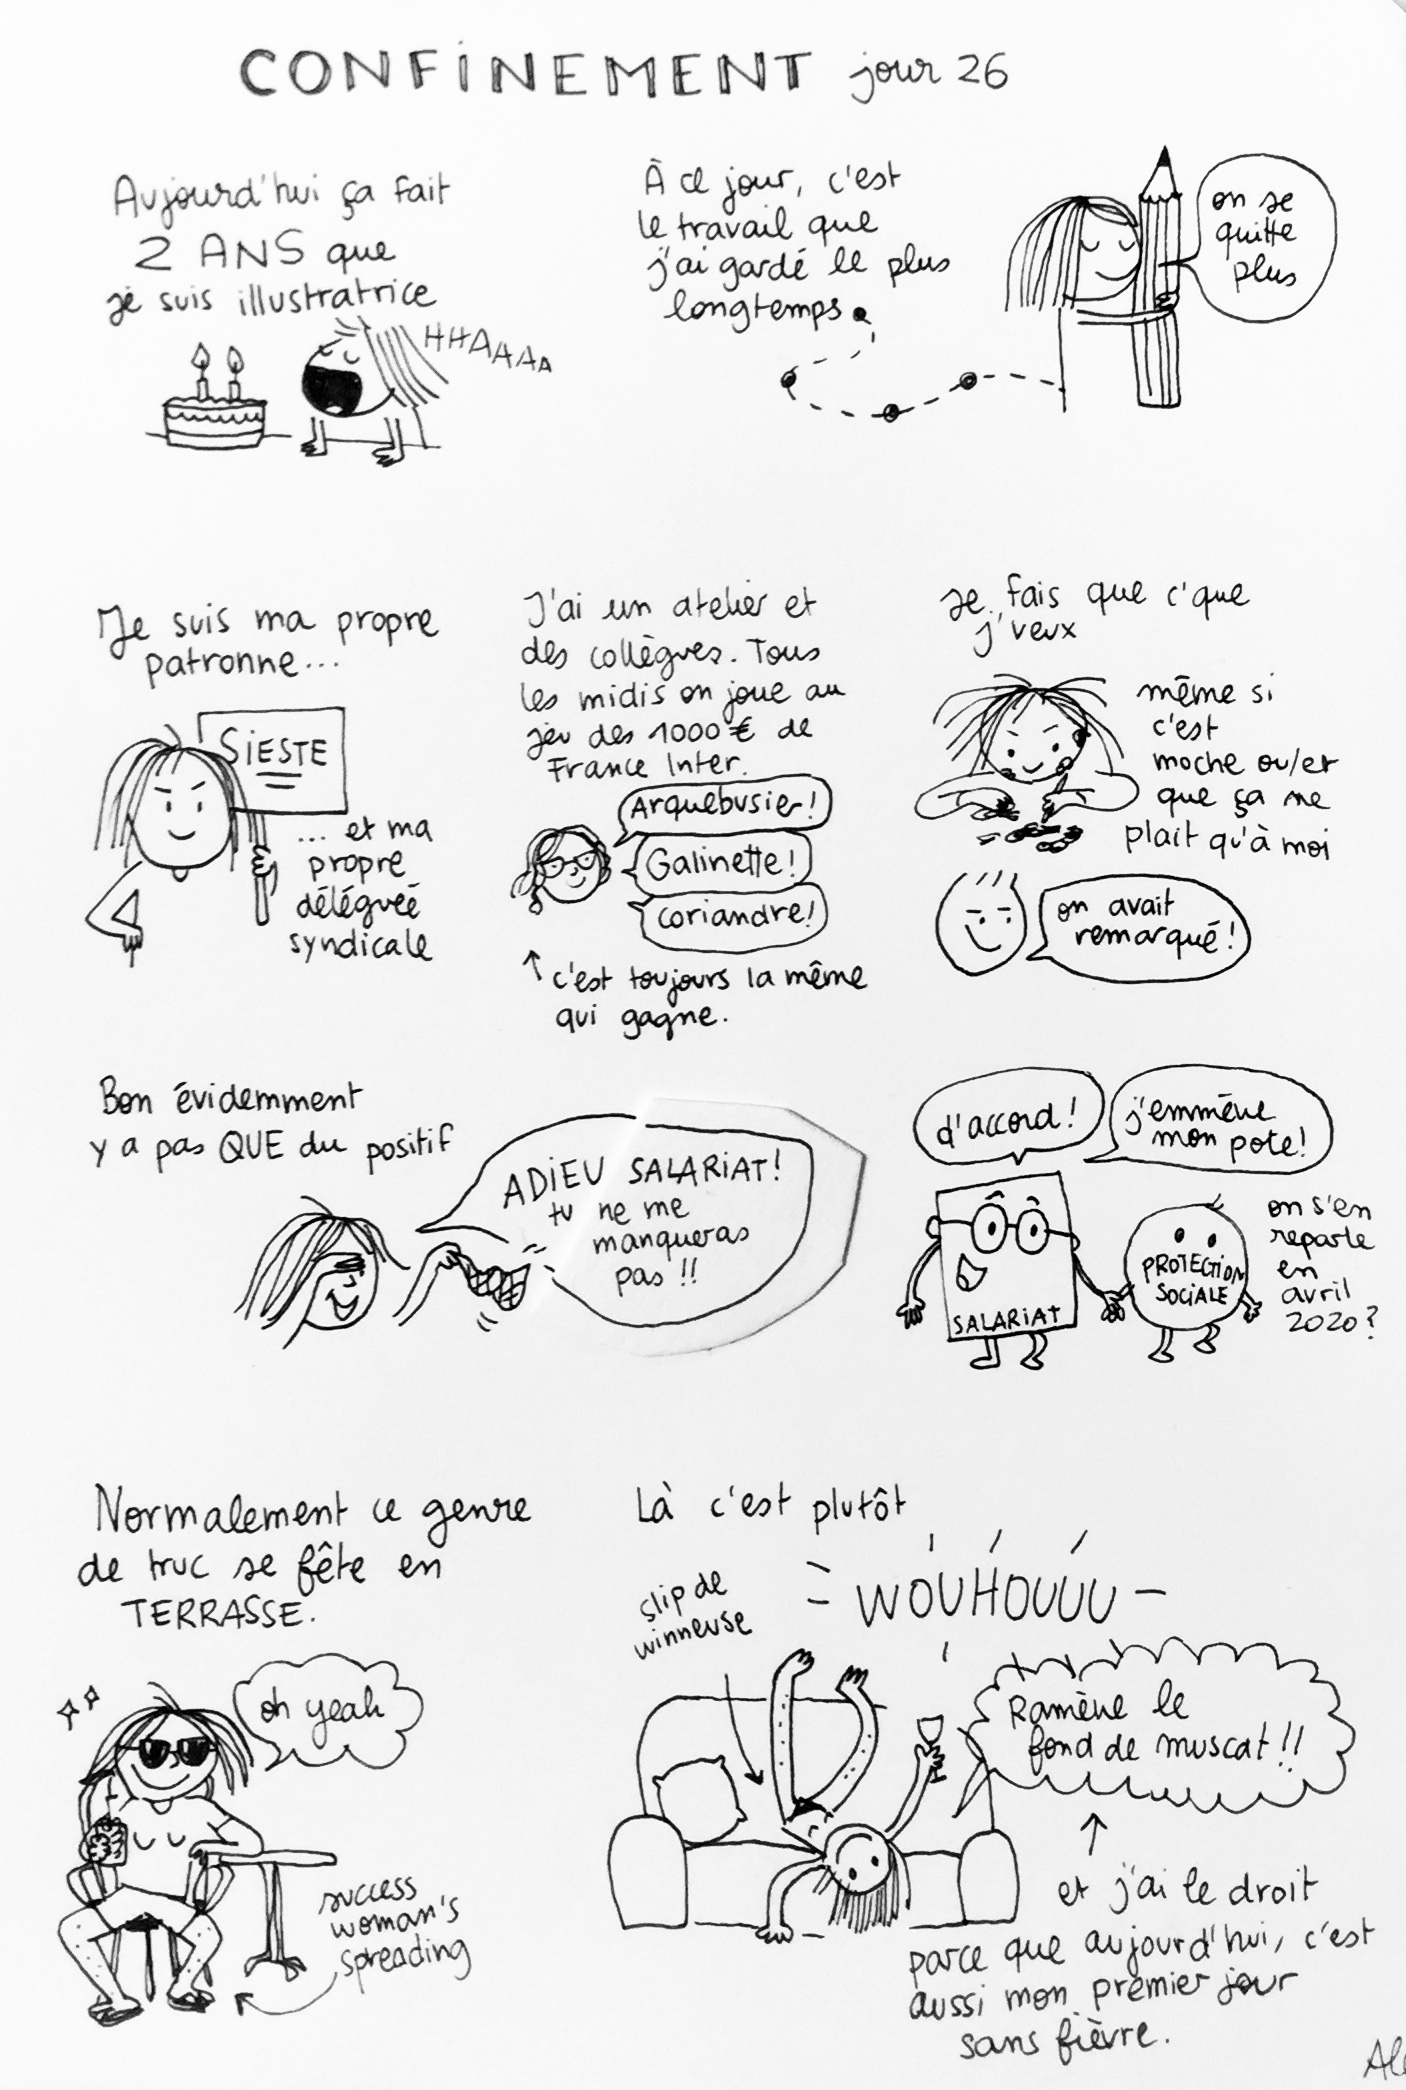 CONFINEMENT jour 26
Aujourd'hui ça fait
2 ANS que
je suis illustratrice
HHAAAAA
À ce jour, c'est
le travail que
j'ai gardé le plus
longtemps
on se
quitte
plus
Je suis ma propre
patronne...
SIESTE
... et ma
propre
déléguéé
syndicale
J'ai un atelier et
des collègues. Tous
les midis on joue au
jeu des 1000€ de
France Inter.
Arquebusier!
Galinette!
coriandre!
c'est toujours la même
qui gagne.
Je fais que c'que
j'veux
même si
c'est
moche ou/et
que ça ne
plait qu'à moi
on avait
remarqué!
Bon évidemment
y a pas QUE du positif
ADIEU SALARIAT!
tu ne me
manqueras
pas !!
d'accord!
j'emmène
mon pote!
SALARIAT
PROTECTION
SOCIALE
on s'en
reparle
en
avril
2020?
Normalement ce genre
de truc se fête en
TERRASSE.
oh yeah
success
woman's
spreading
Là c'est plutôt
WOUHOUUU
slip de
winneuse
Ramène le
fond de muscat!!
et j'ai le droit
parce que aujourd'hui, c'est
aussi mon premier jour
sans fièvre.